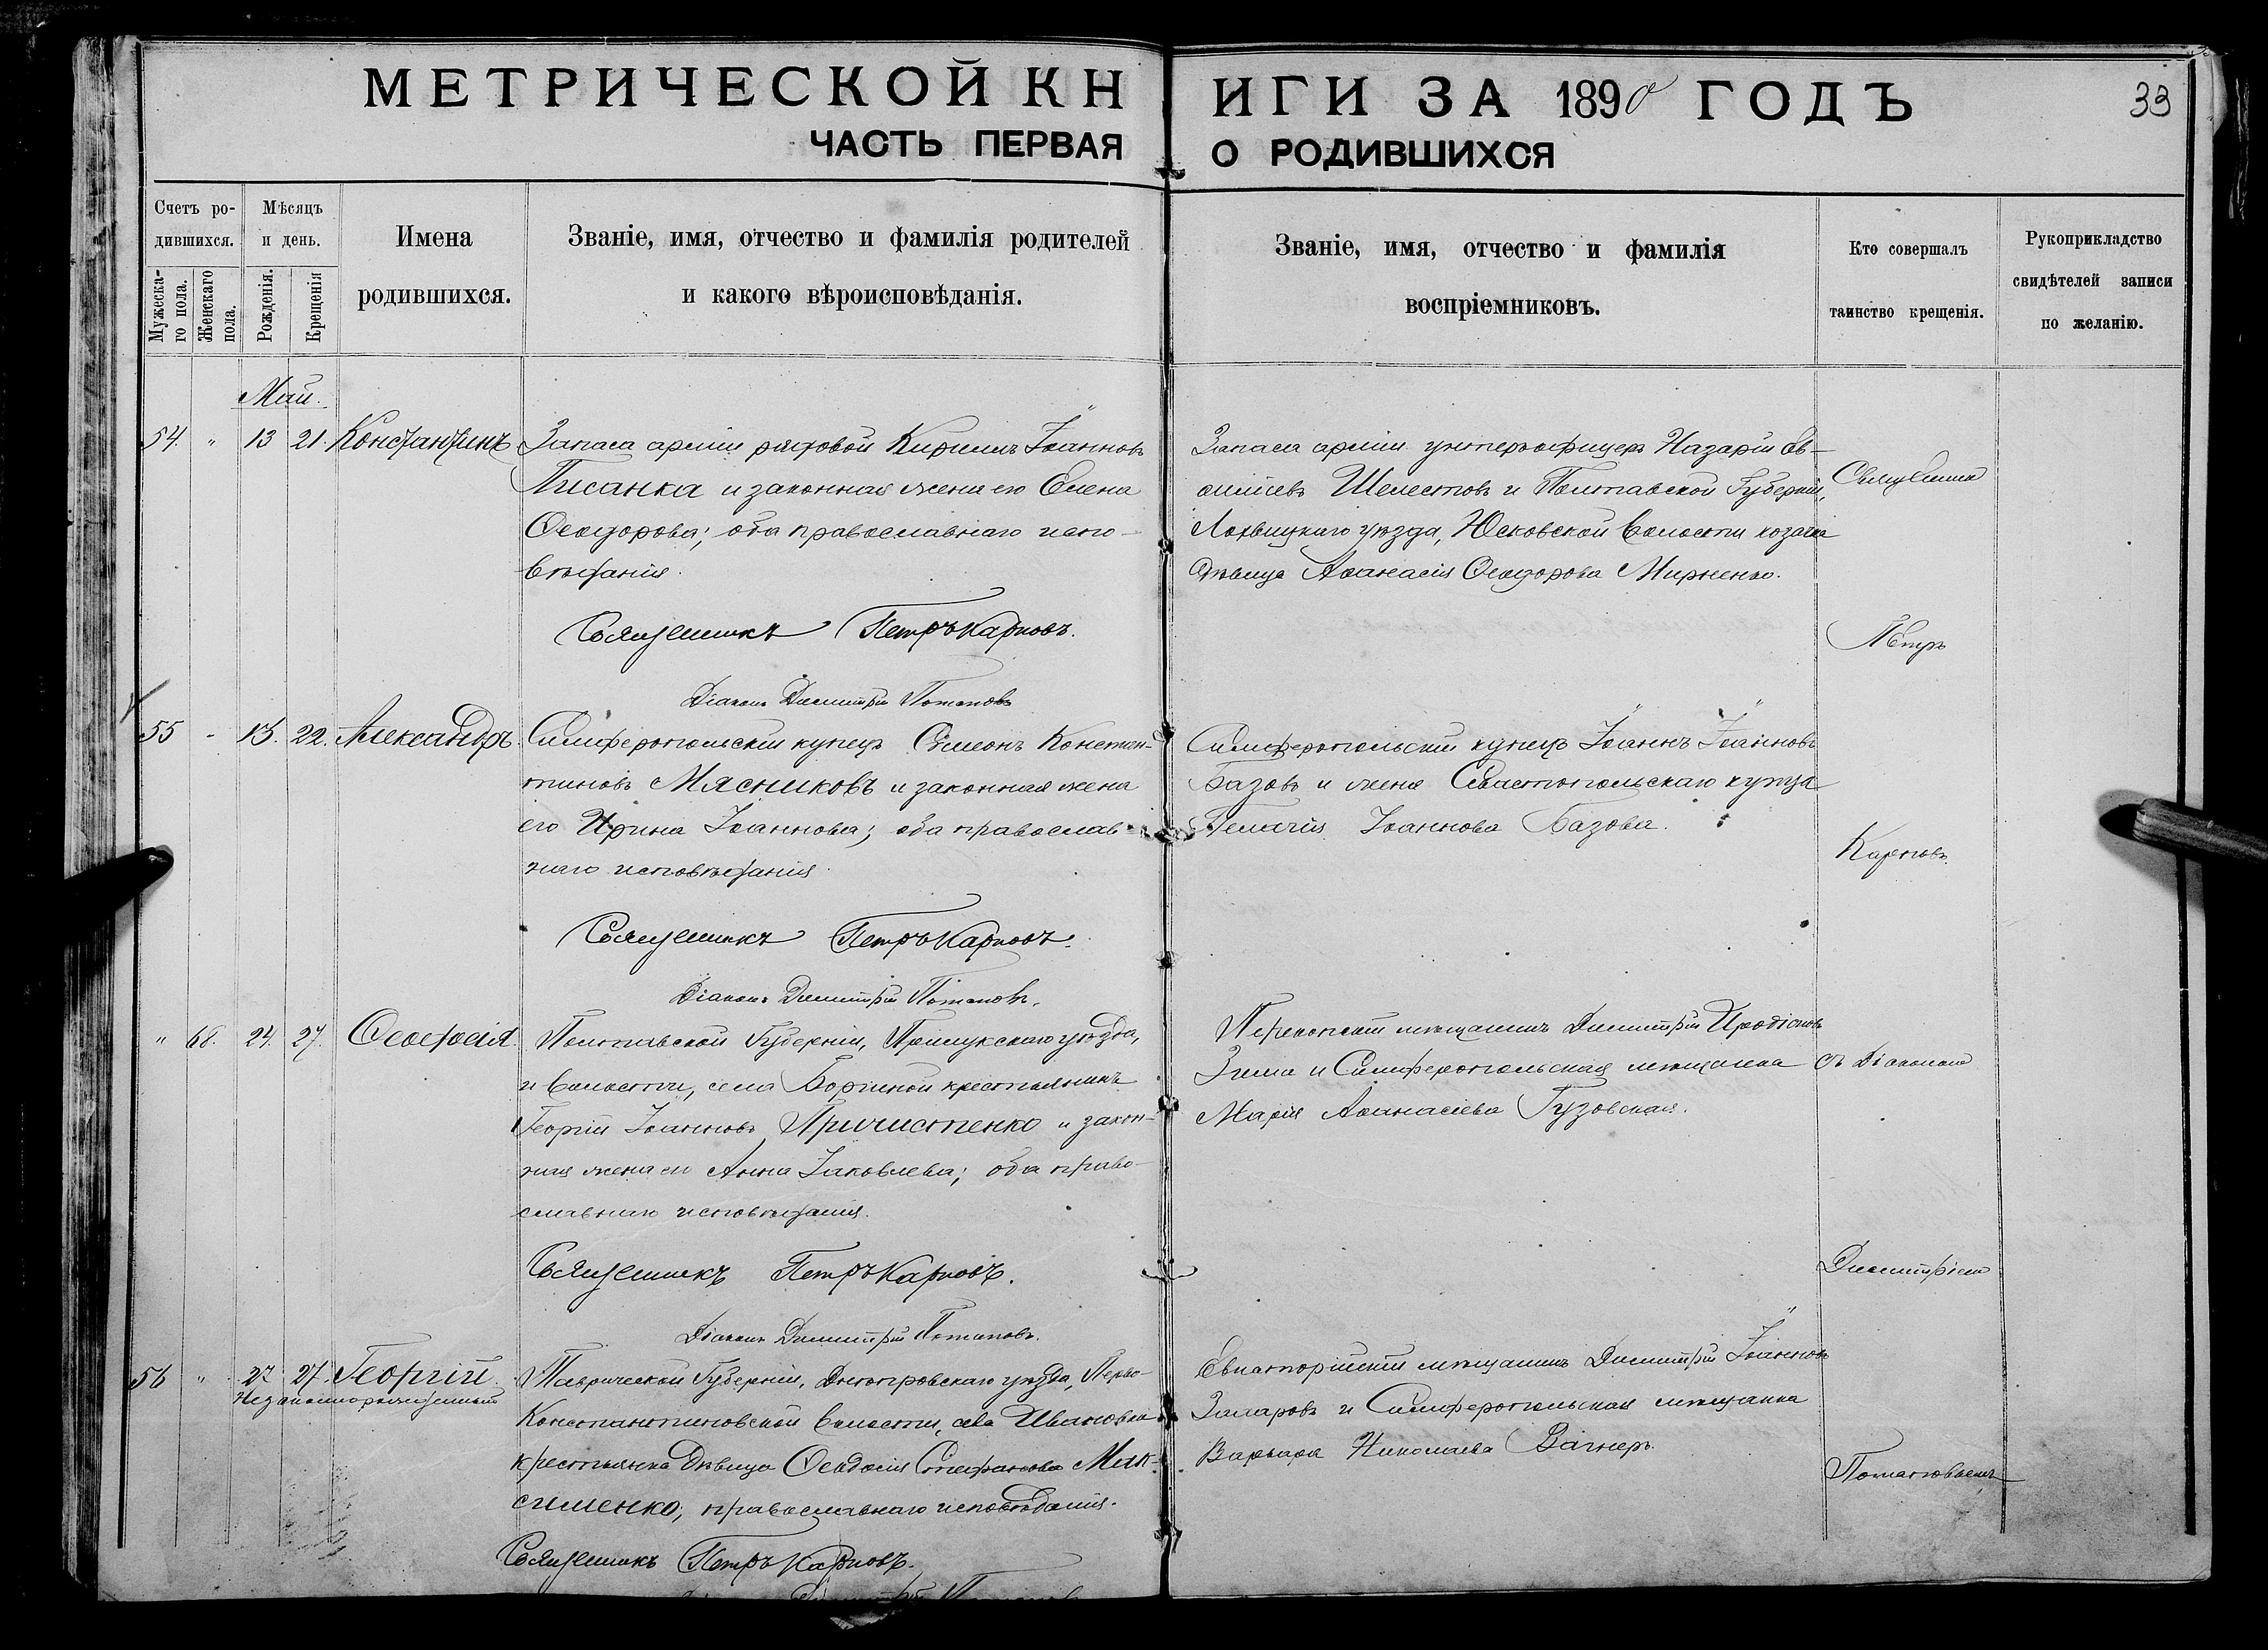 МЕТРИЧЕСКОЙ КНИГИ ЗА 1890 ГОДЪ
33
ЧАСТЬ ПЕРВАЯ О РОДИВШИХСЯ
Счетъ ро-
дившихся.
Мужеска-
го пола.
Женскаго
пола.
Мѣсяцъ
и день.
Рожденія.
Крещенія
Имена
родившихся.
Званіе, имя, отчество и фамилія родителей
и какого вѣроисповѣданія.
Званіе, имя, отчество и фамилія
воспріемниковъ.
Кто совершалъ
таинство крещенія.
Рукоприкладство
свидѣтелей записи
по желанію.
Май.
54. " 13 21. Константинъ
Запаса арміи рядовой Кириллъ Іоанновъ
Писанка и законная жена его Елена
Ѳеодорова; оба православнаго испо-
вѣданія.
Священникъ Петръ Карповъ.
Діаконъ Димитрій Потаповъ
Запаса арміи унтеръ-офицеръ Назарій
Шелестовъ и Полтавской Губерніи,
Лохвицкаго уѣзда, Юсковской волости козачка
дѣвица Аѳанасія Ѳеодорова Мирненко.
55 - 13. 22. Александръ
Симферопольскій купецъ Симеонъ Констан-
тиновъ Мясниковъ и законная жена
его Ирина Іоаннова; оба православ-
наго исповѣданія.
Священникъ Петръ Карповъ.
Діаконъ Димитрій Потаповъ.
Симферопольскій купецъ Іоаннъ Іоанновъ
Базовъ и жена Севастопольскаго купца
Іоаннова Базова.
" 68. 24. 27. Ѳеодосія
Полтавской Губерніи, Прилукскаго уѣзда,
и волости, села крестьянинъ
Георгій Іоанновъ Причистенко и закон-
ная жена его Анна Іаковлева; оба право-
славнаго исповѣданія.
Священникъ Петръ Карповъ.
Діаконъ Димитрій Потаповъ.
Перекопскій мѣщанинъ Димитрій Иродіоновъ
Зима и Симферопольская мѣщанка
Марія Аѳанасіева Гузовская.
56 " 27 27. Георгій.
Незаконнорожденный
Таврической Губерніи, Днѣпровскаго уѣзда, Перво-
Константиновской волости, села Ивановки
крестьянка дѣвица Ѳеодосія Стефанова Мак-
сименко; православнаго исповѣданія.
Священникъ Петръ Карповъ.
Евпаторійскій мѣщанинъ Димитрій Іоанновъ
и Симферопольская мѣщанка
Варвара Николаева Вагнеръ.
Священникъ
Петръ
Карповъ
съ Діакономъ
Димитріемъ
Потаповымъ